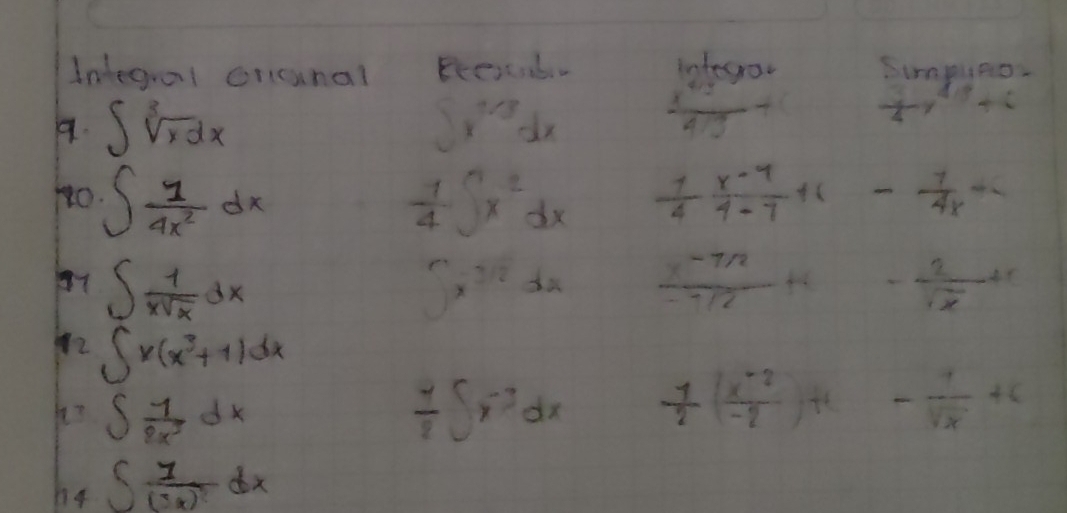 Integral original Reescribir Integrar Simplificar
9. ∫ ∛x dx ∫ x^1/3 dx x^4/3 / 4/3 + c 3/4 x^4/3 + c
10. ∫ 1/4x² dx 1/4 ∫ x^-2 dx 1/4 x^-1 / + c - 1/4x + c
11 ∫ 1/x√x dx ∫ x^-3/2 dx x^-1/2 / -1/2 + c - 2/√x + c
12 ∫ x(x³+1)dx
13 ∫ 1/2x³ dx 1/2 ∫ x^-3 dx 1/2 (x^-2 / -2) + c - 1/√x + c
14 ∫ 1/(3x)² dx